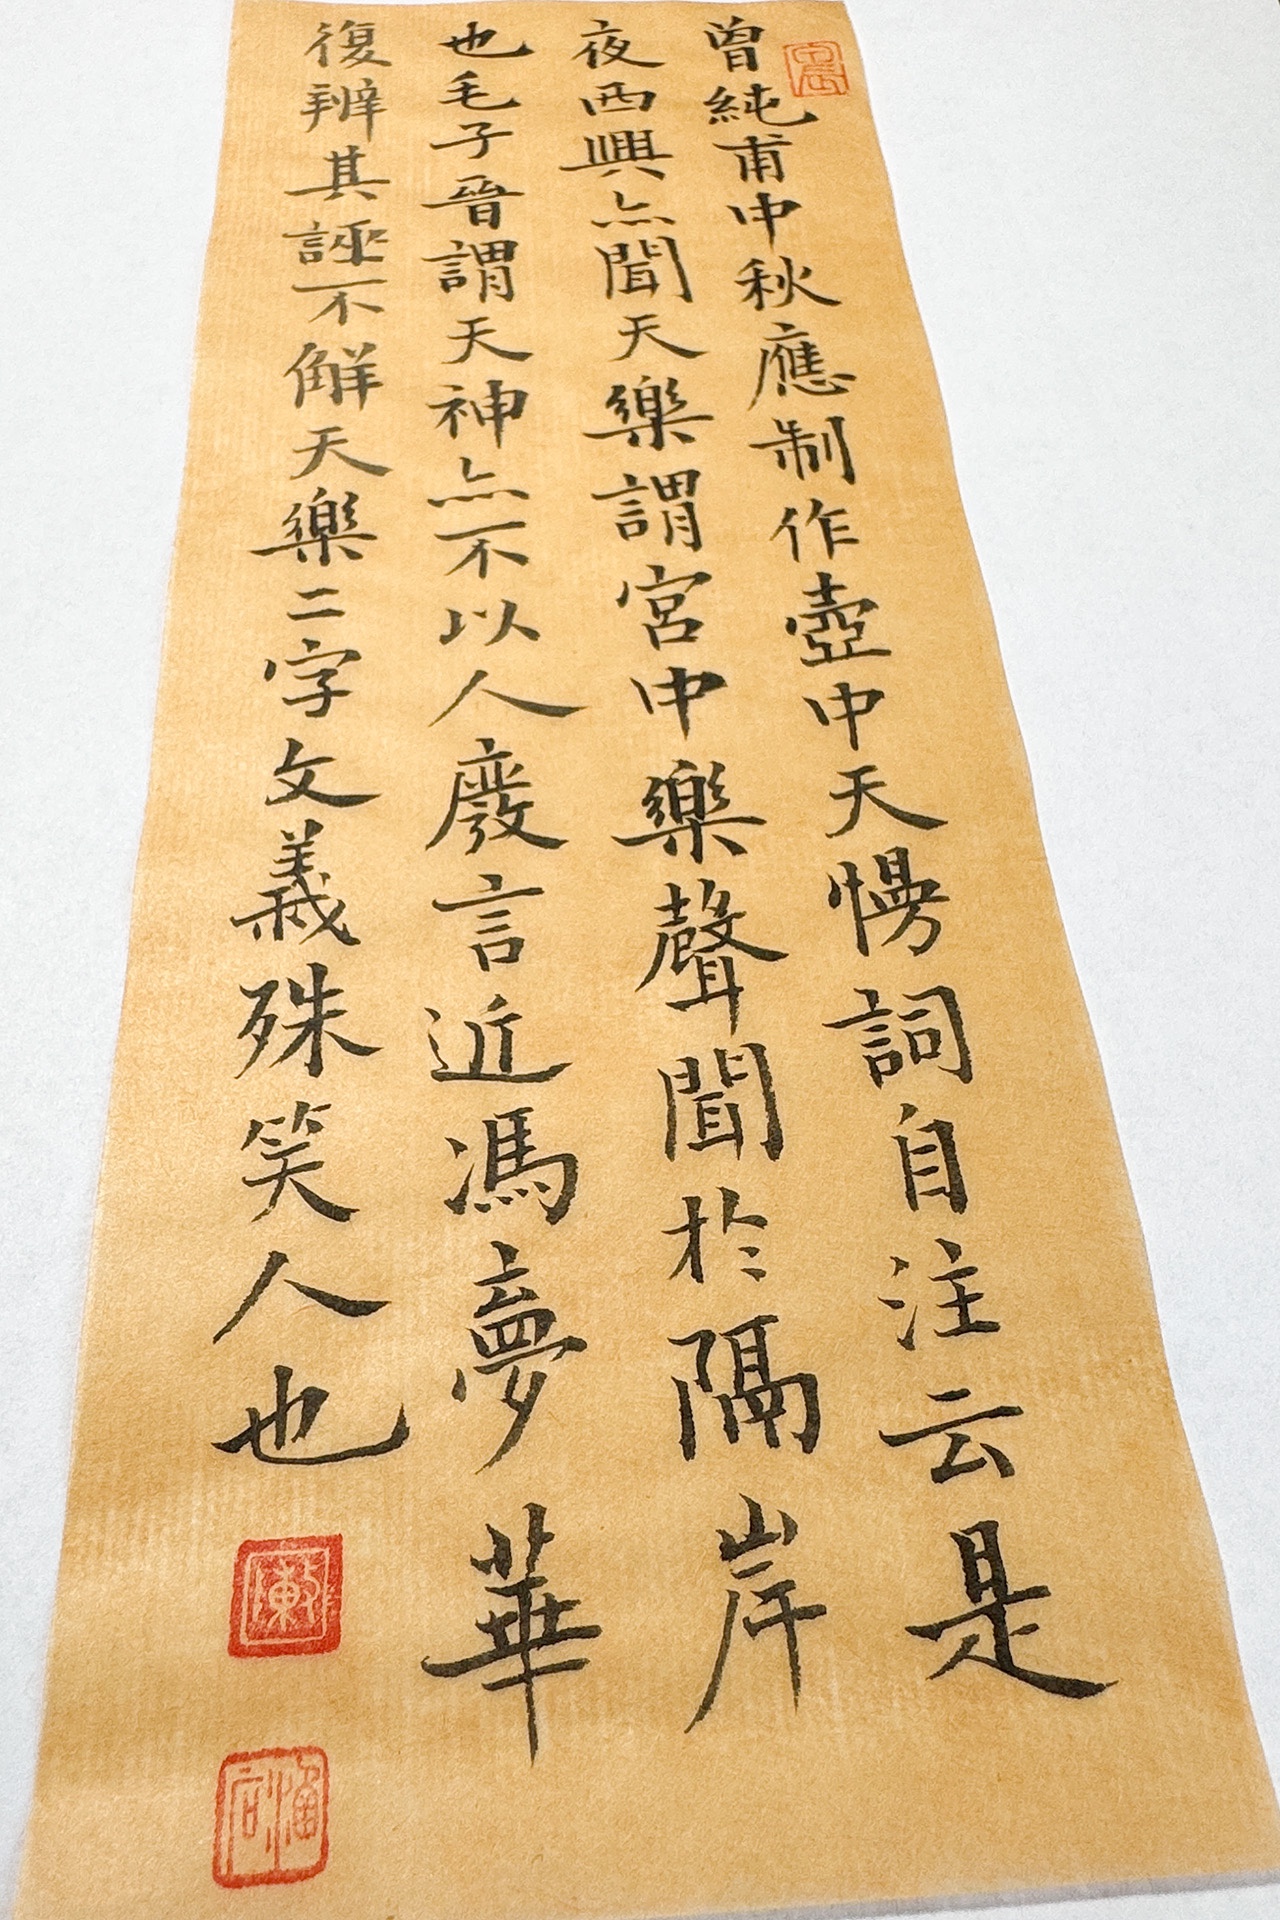 曾純甫中秋應制作壺中天慢詞自注云是
夜西興亦聞天樂謂宮中樂聲聞於隔岸
也毛子晉謂天神亦不以人廢言近馮夢華
復辨其誣不解天樂二字文義殊笑人也